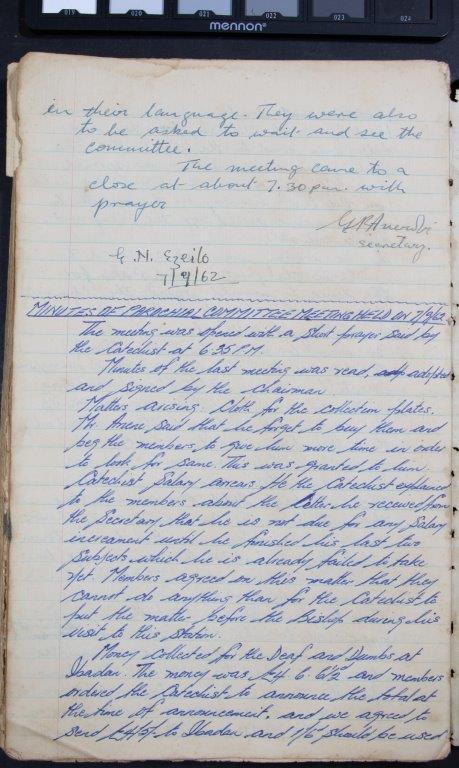 019 020 021 022 023 024
mennon®
in their language. They were also
to be asked to wait and see the
committee.
The meeting came to a
close at about 7.30 p.m. with
prayer
secretary.
G. N. Ezeilo
7/9/62
MINUTES OF PARACHIAL COMMITTEE MEETING HELD ON 7/9/62
The meeting was opened with a short prayer said by
the Catechist at 6.35 P.M.
Minutes of the last meeting was read, adopted
and signed by the chairman.
Matters arising: Cloth for the collection plates.
Mr. said that he forget to buy them and
beg the members to give him more time in order
to look for same. This was granted to him.
Catechist Salary arrears: the Catechist explained
to the members about the letter he received from
the Secretary that he is not due for any Salary
increament until he finished his last two
Subjects which he is already failed to take
yet. Members agreed on this matter that they
cannot do anything than for the Catechist to
put the matter before the Bishop during his
visit to this Station.
Money collected for the Deaf and Dumbs at
Ibadan. The money was and members
ordered the Catechist to announce the total at
the time of announcement, and we agreed to
send to Ibadan and 1/6 should be used